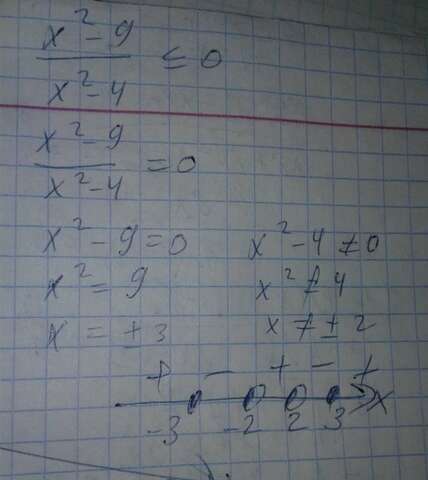 x² - 9
x² - 4
≤ 0
x² - 9
x² - 4
= 0
x² - 9 = 0 x² - 4 ≠ 0
x² = 9 x² ≠ 4
x = ± 3 x ≠ ± 2
+ - + - +
-3 -2 2 3 x